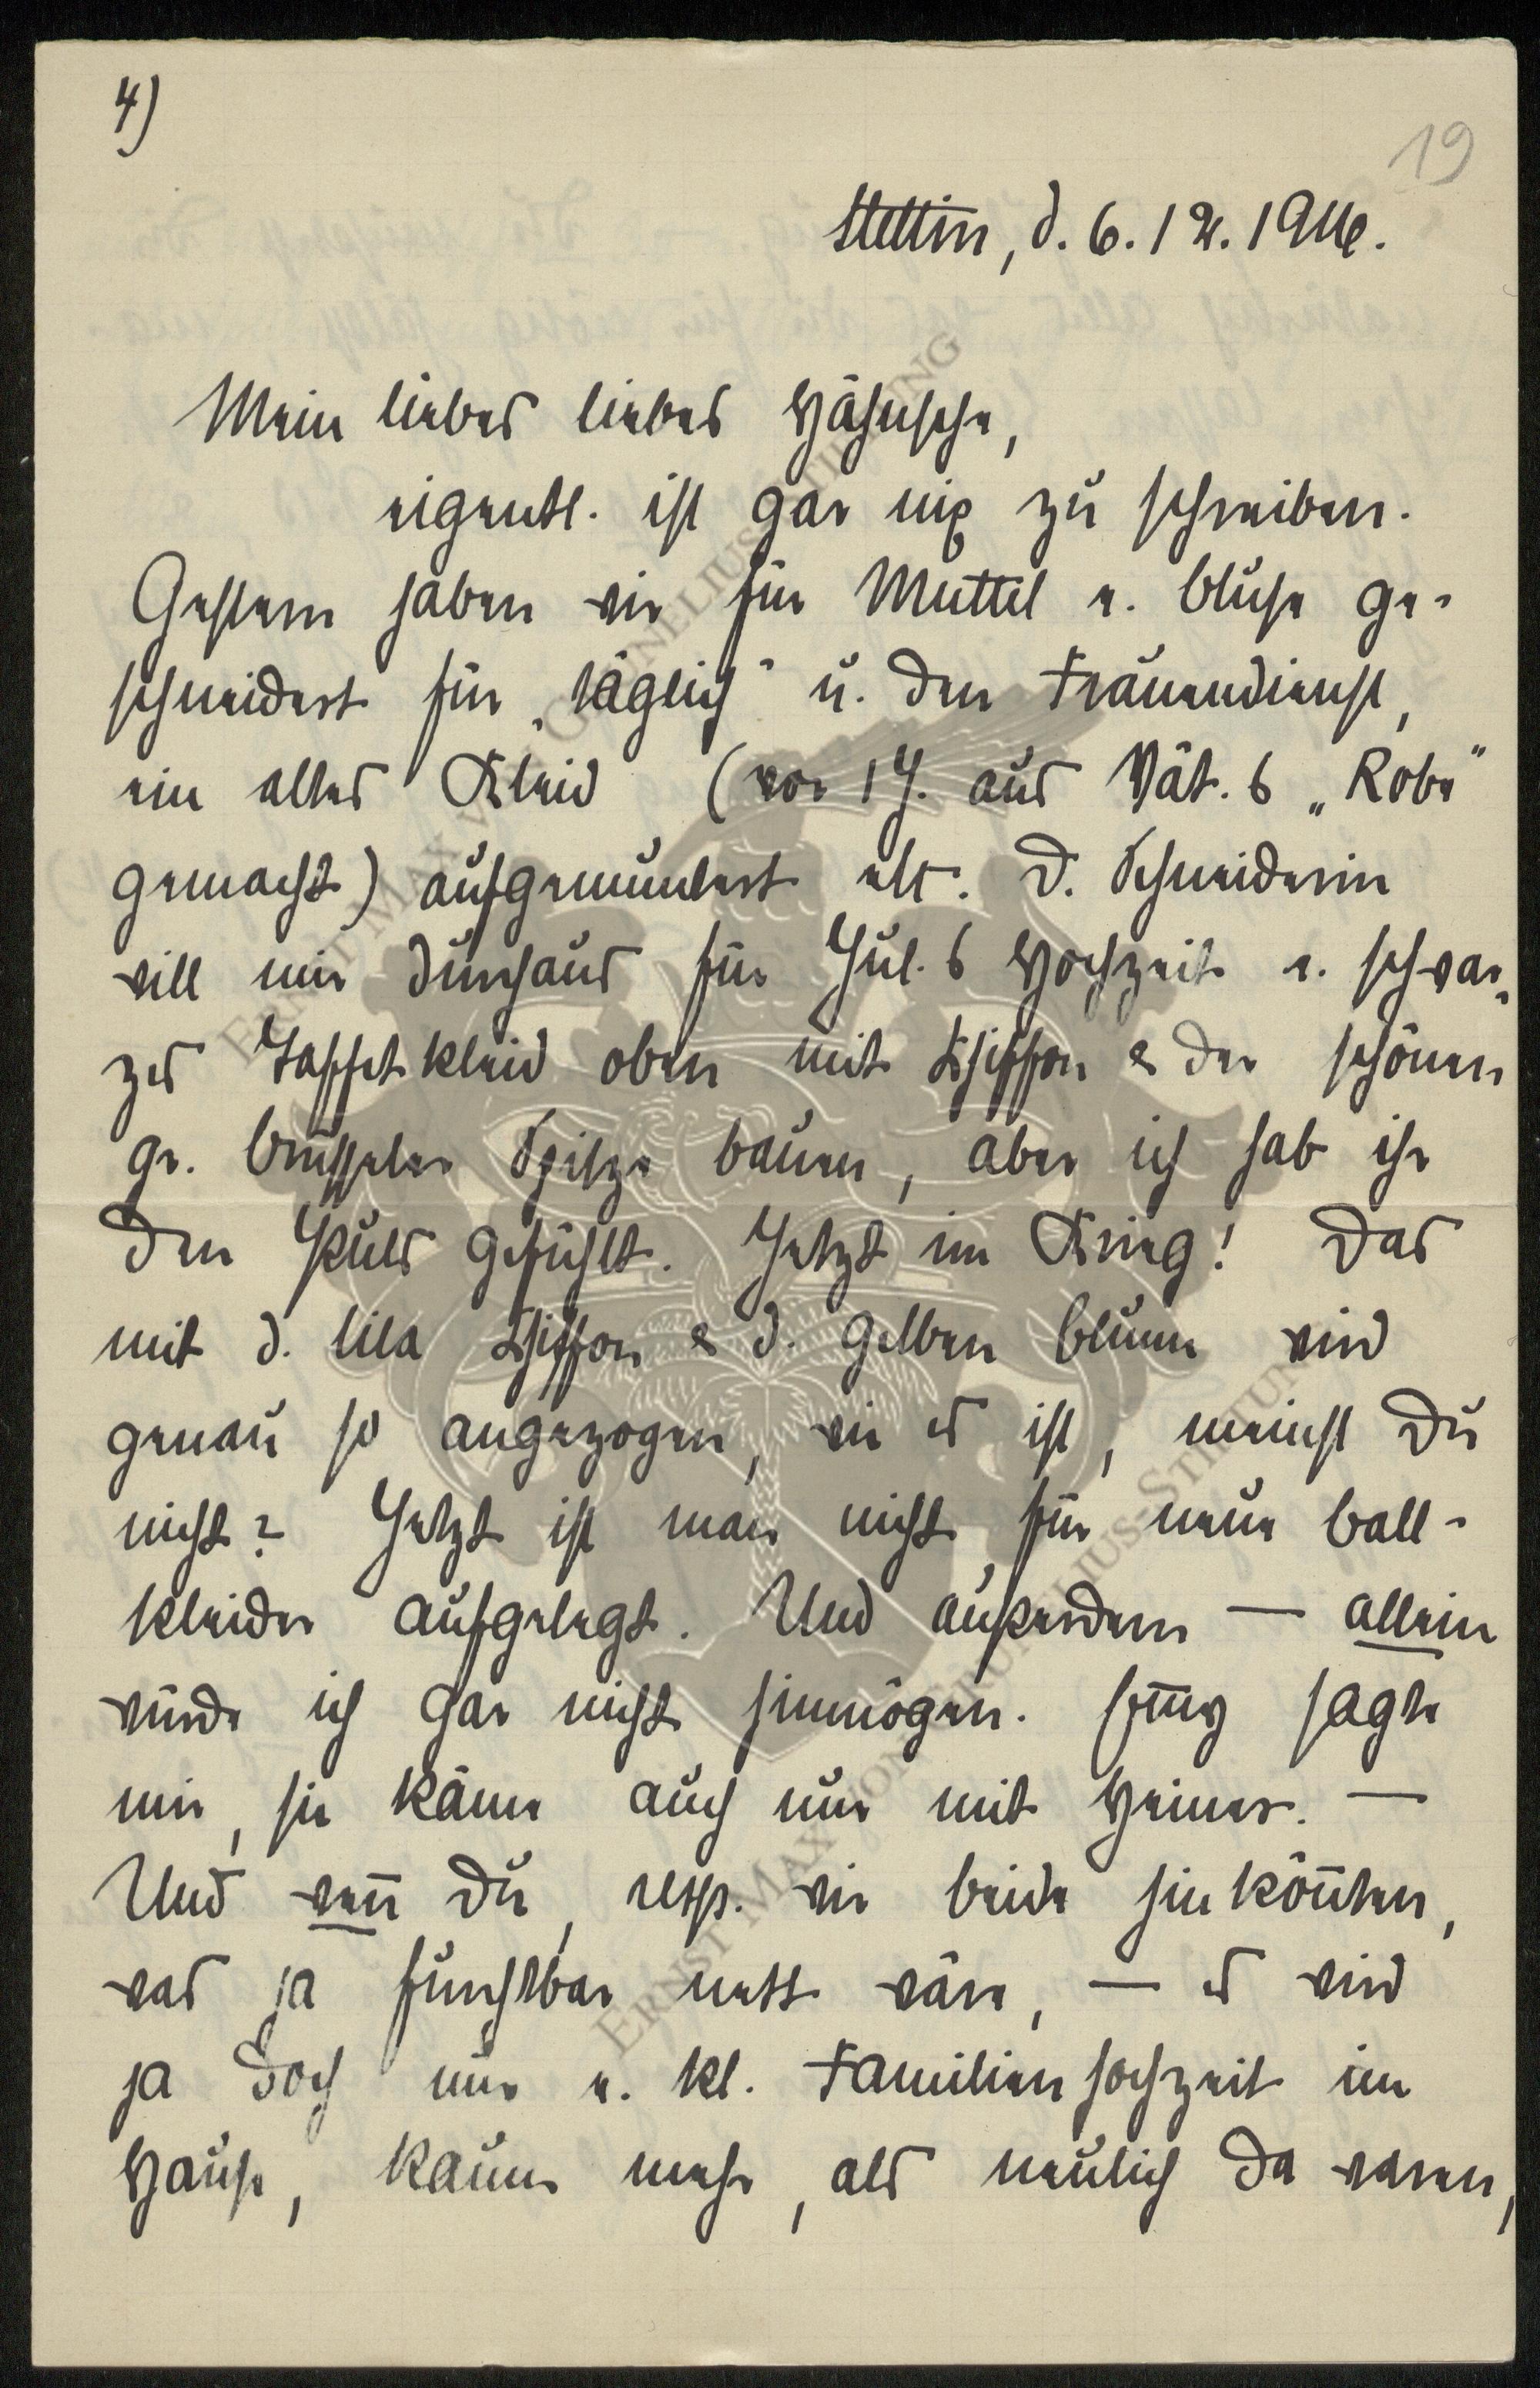 4)
19
Stettin, d. 6. 12. 1916.
Mein liebes liebes Hähnsche,
eigentl. ist gar nix zu schreiben.
Gestern haben wir für Muttel e. Bluse ge-
schneidert für „täglich“ u. den Frauendienst,
ein altes Kleid (vor 1 J. aus Vät.s „Robe“
gemacht) aufgemuntert etc. D. Schneiderin
will mir durchaus für Jul.s Hochzeit e. schwar-
zes Taffetkleid oben mit Chiffon & der schönen
gr. Brüsseler Spitze bauen, aber ich hab ihr
den gekühlt. Jetzt im Krieg! Das
mit d. lila Chiffon & d. gelben Blume wird
genau so angezogen, wie es ist, meinst Du
nicht? Jetzt ist man nicht für neue Ball-
kleider aufgelegt. Und außerdem — allein
würde ich gar nicht hinmögen. sagte
mir, sie käme auch nur mit Heiner. —
Und wen̄ Du, resp. wir beide hin kön̄ten,
was ja furchtbar nett wäre, — es wird
ja doch nur e. kl. Familienhochzeit im
Hause, kaum mehr, als neulich da waren,
ERNST MAX VON CORNELIUS-STIFTUNG
ERNST MAX VON CORNELIUS-STIFTUNG